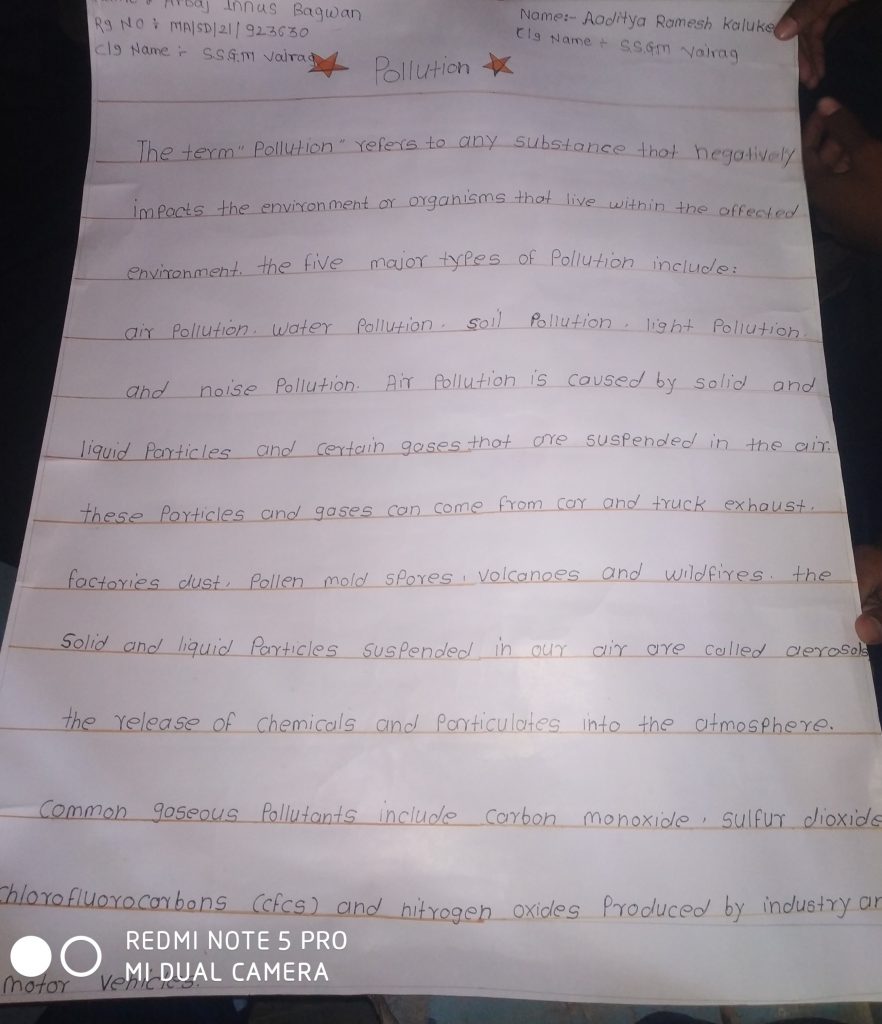 Arbaj Innus Bagwan
Rg No : MA/SD/21/923630
Clg Name :- S.S.G.M Vairag
Name:- Aaditya Ramesh Kaluke
Clg Name :- S.S.G.M Vairag
Pollution
The term "Pollution" refers to any substance that negatively
impacts the environment or organisms that live within the affected
environment. the five major types of Pollution include:
air Pollution. water Pollution. soil Pollution. light Pollution.
and noise Pollution. Air Pollution is caused by solid and
liquid Particles and certain gases that are suspended in the air.
these Particles and gases can come from car and truck exhaust.
factories dust, Pollen mold spores, volcanoes and wildfires. the
Solid and liquid Particles suspended in our air are called aerosols
the release of chemicals and Particulates into the atmosphere.
Common gaseous Pollutants include carbon monoxide, sulfur dioxide
chlorofluorocarbons (cfcs) and nitrogen oxides Produced by industry an
motor vehicles.
REDMI NOTE 5 PRO
MI DUAL CAMERA